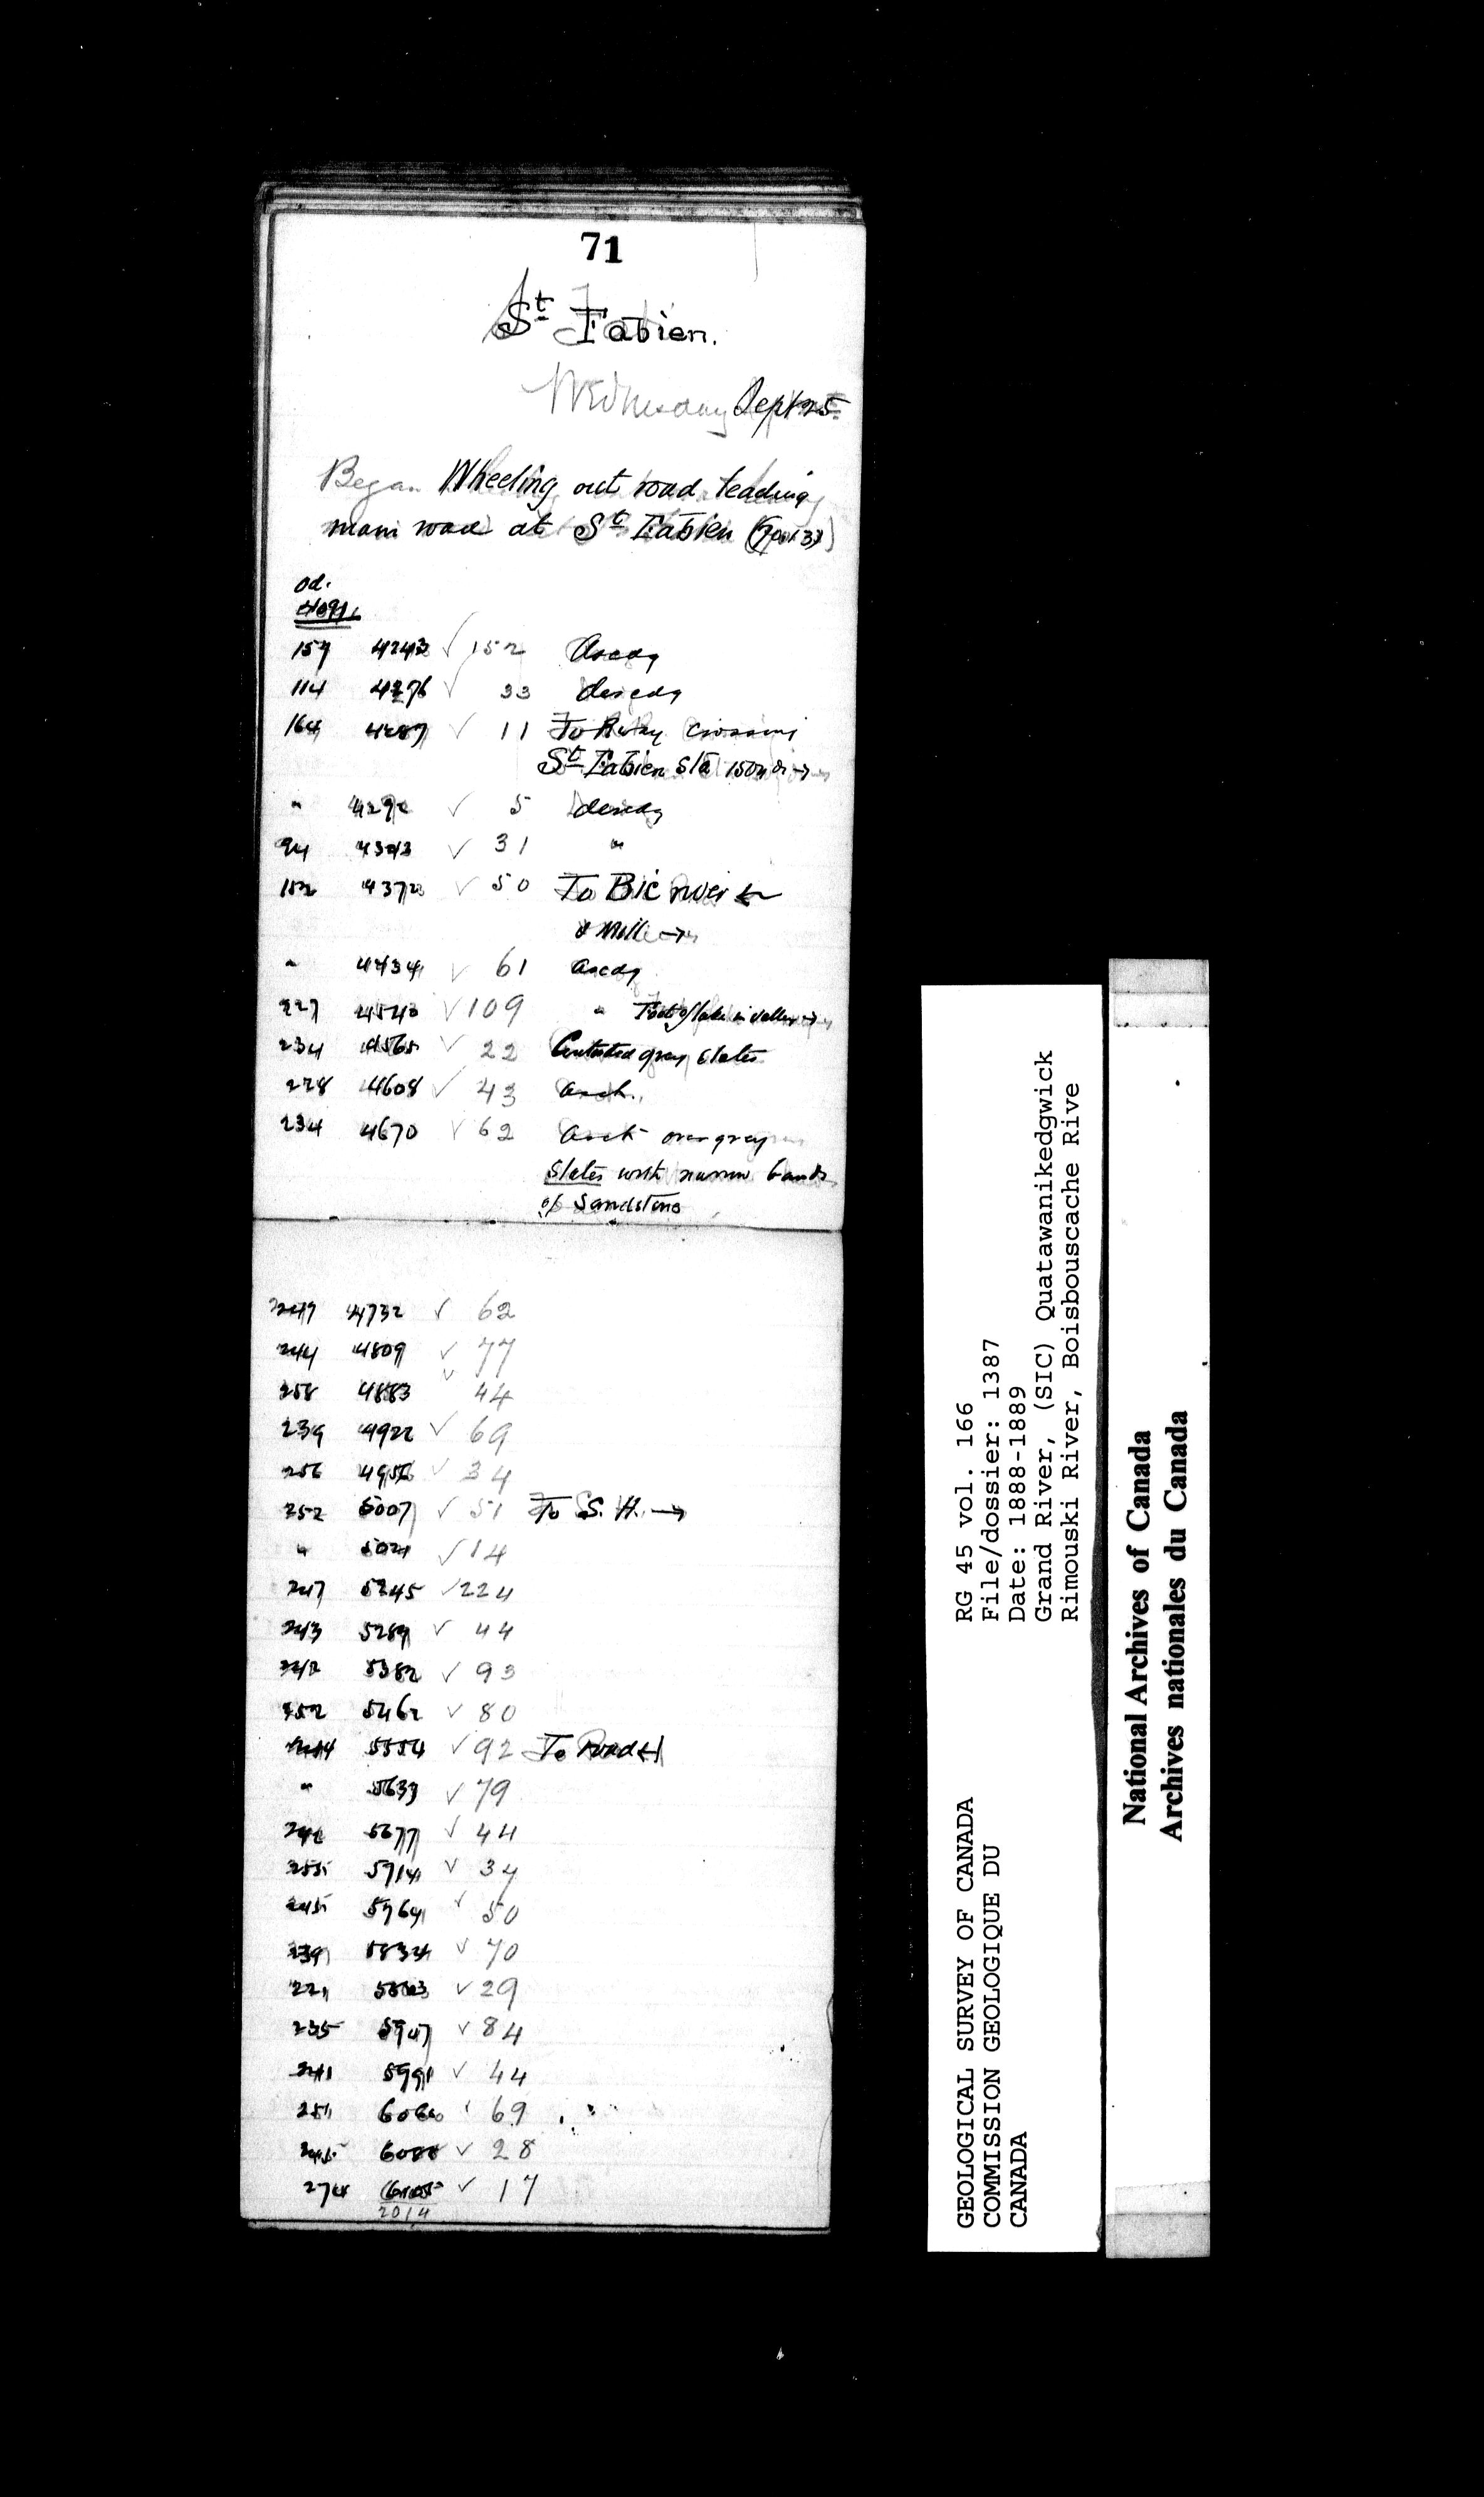 71
St Fabien.
Wednesday Sept 25
Began Wheeling out road leading
main road at St Fabien
od.
4091
157 4243 √ 152 Ascdg
114 4276 √ 33 descdg
164 4287 √ 11 To Rway crossing
St Fabien Sta 150 yds →
" 4292 √ 5 descdg
94 4323 √ 31 "
182 4373 √ 50 To Bic river ←
& Mill →
" 4434 √ 61 ascdg
227 4543 √ 109 " Foot of lake in valley →
234 4565 √ 22 Contorted gray slates
228 4608 √ 43 asch.
234 4670 √ 62 asch over gray
slates with narrow bands
of Sandstone
249 4732 √ 62
244 4809 √ 77
258 4853 √ 44
239 4922 √ 69
256 4956 √ 34
252 5007 √ 51 To S. H. →
" 5021 √ 14
247 5245 √ 224
243 5289 √ 44
242 5382 √ 93
252 5462 √ 80
244 5554 √ 92 To Road
" 5633 √ 79
242 5677 √ 44
255 5714 √ 34
245 5764 √ 50
239 5834 √ 70
221 5863 √ 29
235 5947 √ 84
241 5991 √ 44
251 6060 √ 69
245 6088 √ 28
274 6105 √ 17
2014
RG 45 vol. 166
File/dossier: 1387
Date: 1888-1889
Grand River, (SIC) Quatawanikedgwick
Rimouski River, Boisbouscache Rive
GEOLOGICAL SURVEY OF CANADA
COMMISSION GEOLOGIQUE DU
CANADA
National Archives of Canada
Archives nationales du Canada